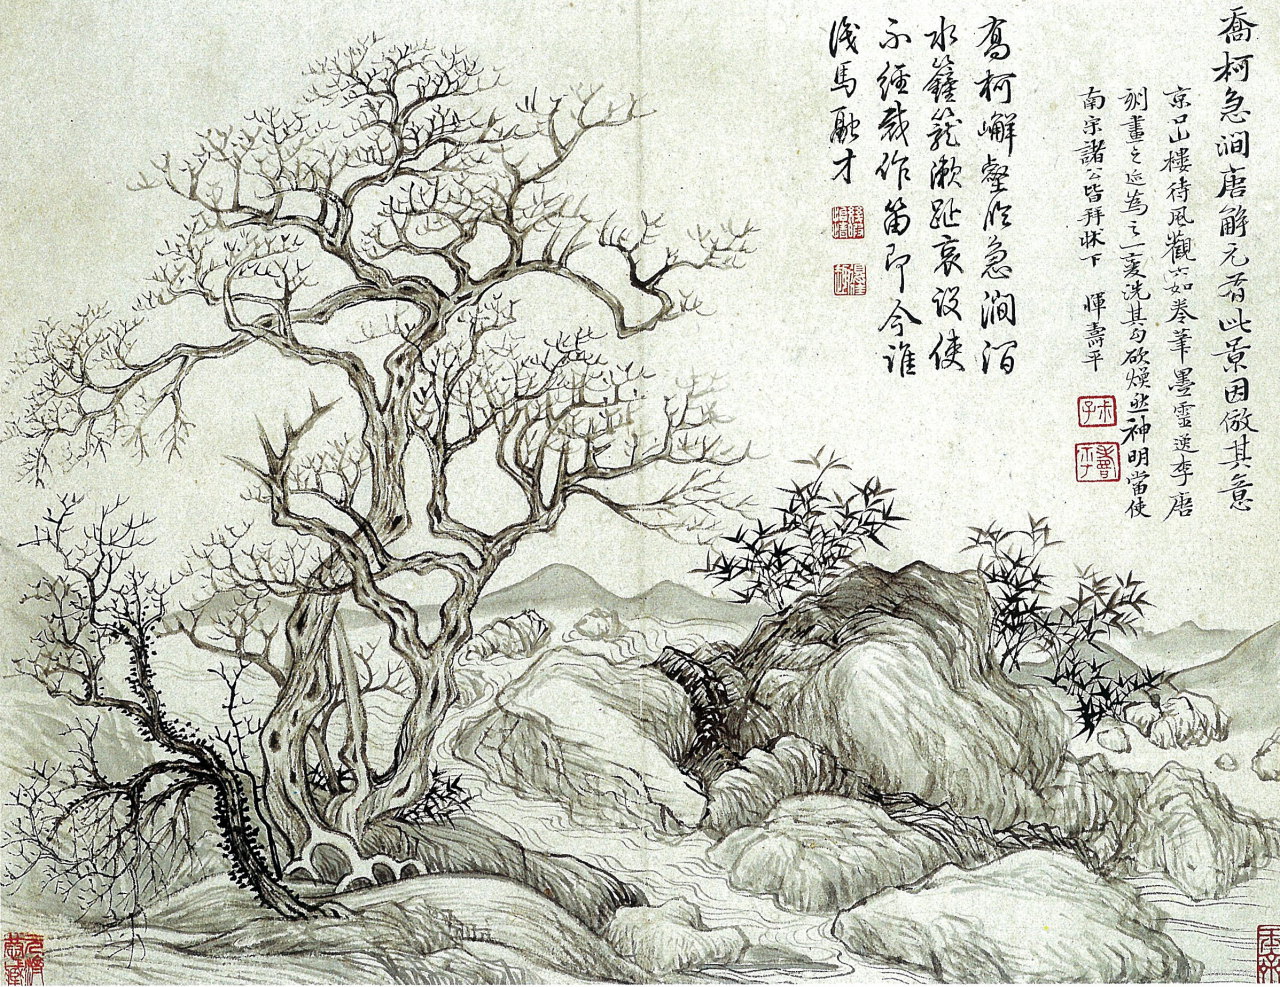 喬柯急澗唐解元有此景因倣其意
京口山樓待風觀六如卷筆墨靈逸李唐
刻畫之迹為之一變洗其勾砍煥然神明當使
南宗諸公皆拜牀下 惲壽平
喬柯嶰壑俯急澗沼
水籦籠漱趾哀設使
不經裁作笛即今誰
識馬融才